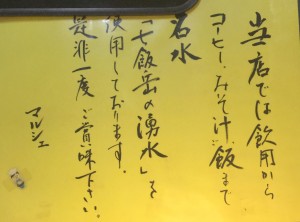 当店では飲用から
コーヒー、みそ汁、飯まで
名水
「七飯岳の湧水」を
使用しております。
是非一度ご賞味下さい。
マルシェ